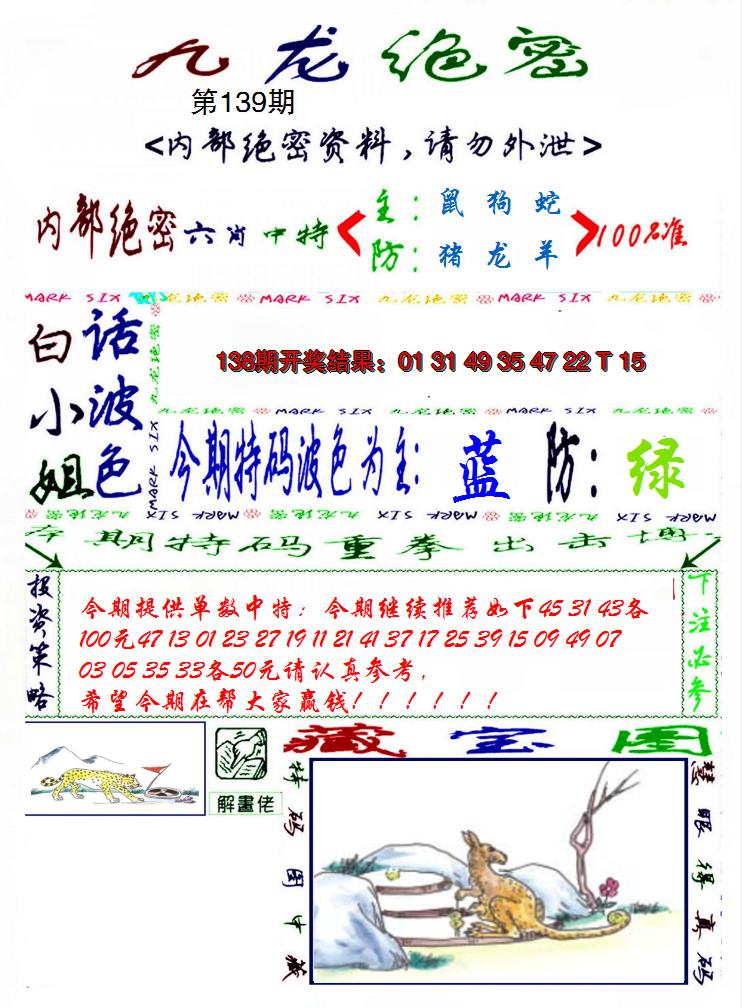 九龙绝密
第139期
<内部绝密资料,请勿外泄>
内部绝密六肖中特
主:鼠狗蛇
防:猪龙羊
100%准
MARK SIX 九龙绝密 MARK SIX 九龙绝密 MARK SIX 九龙绝密
白小姐
话波色
九龙绝密
MARK SIX
138期开奖结果:01 31 49 35 47 22 T 15
九龙绝密 MARK SIX 九龙绝密 MARK SIX 九龙绝密
今期特码波色为主:蓝 防:绿
MARK SIX 九龙绝密 MARK SIX 九龙绝密 MARK SIX 九龙绝密
本期特码重拳出击
投资策略
今期提供单数中特:今期继续推荐如下45 31 43各
100元47 13 01 23 27 19 11 21 41 37 17 25 39 15 09 49 07
03 05 35 33各50元请认真参考,
希望今期在帮大家赢钱!!!!!!
下注必参
解畫佬
藏宝图
特码图中藏
慧眼得真码